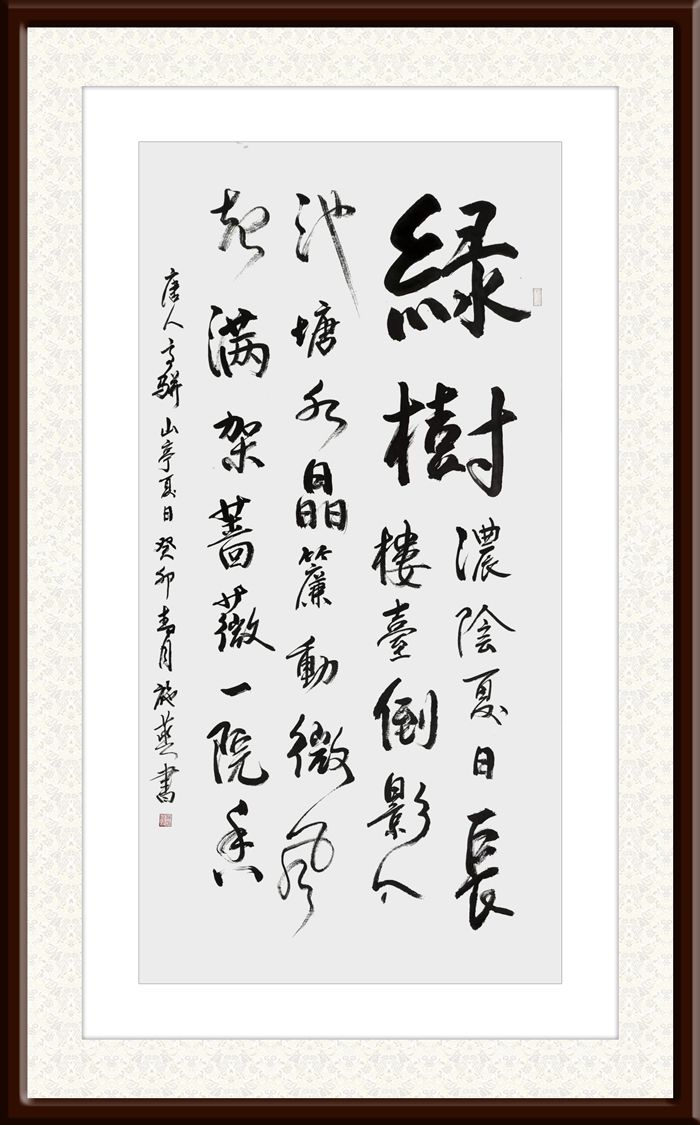 緑樹
濃陰夏日長
樓臺倒影入
池塘水晶簾動微風
起满架薔薇一院香
唐人高駢山亭夏日癸卯春月施燕書